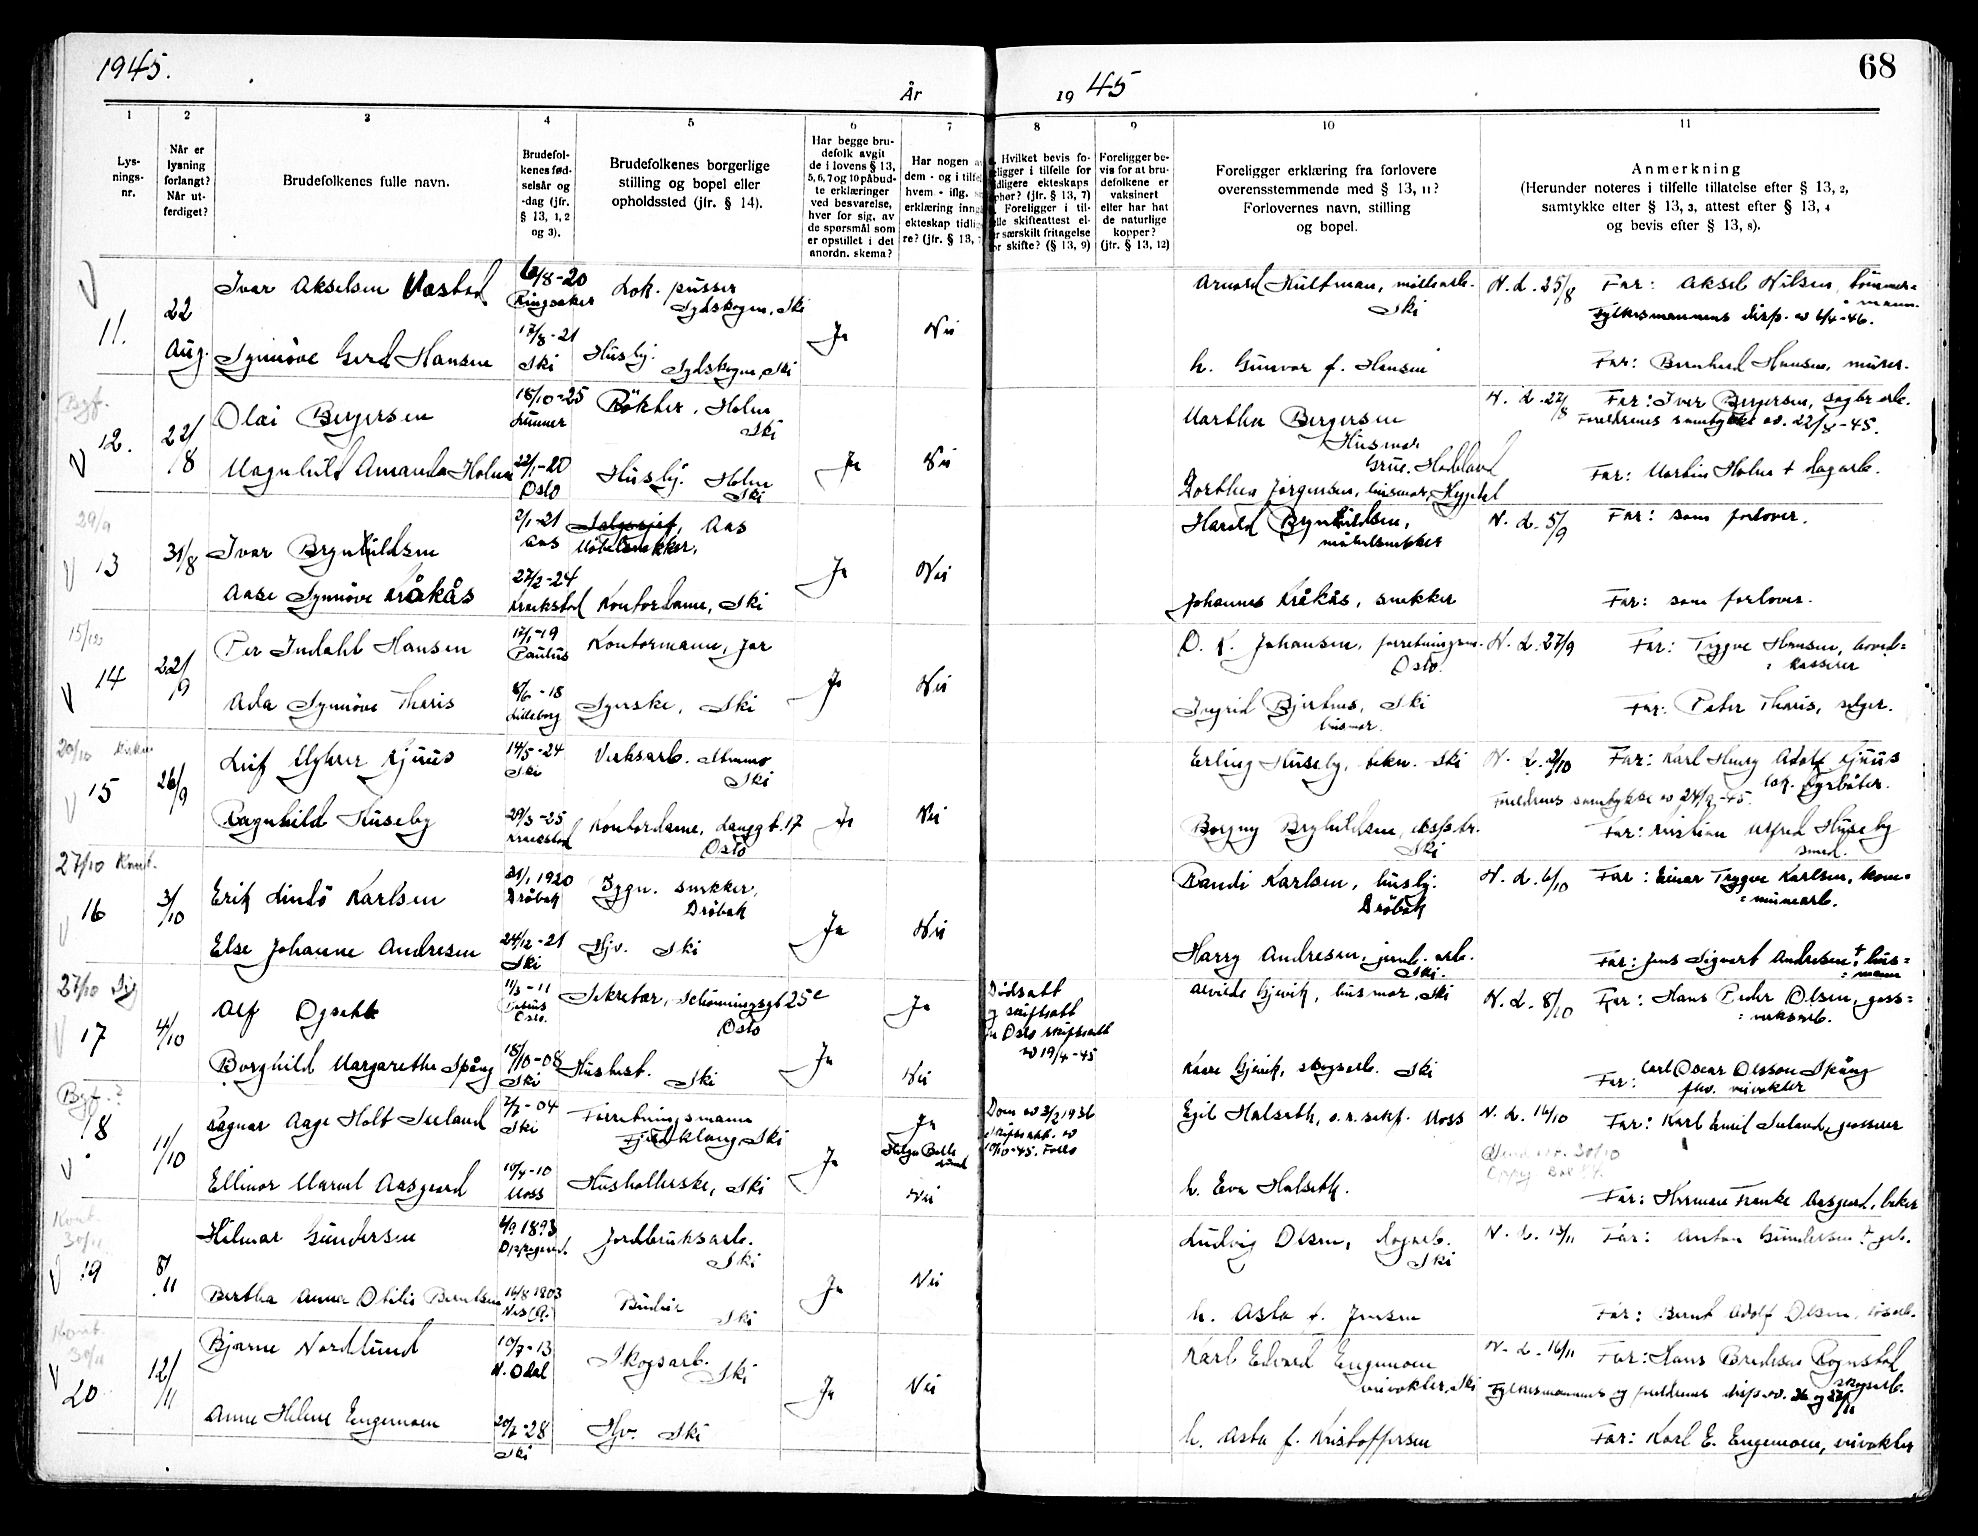 1945.
68
År
19 45
1
2
3
4
5
6
7
8
9
10
11
Lys-
nings-
nr.
Når er
lysning
forlangt?
Når ut-
ferdiget?
Brudefolkenes fulle navn.
Brudefol-
kenes fød-
selsår og
-dag (jfr.
§ 13, 1, 2
og 3).
Brudefolkenes borgerlige
stilling og bopel eller
opholdssted (jfr. § 14).
Har begge bru-
defolk avgit
de i lovens § 13,
5, 6, 7 og 10 påbud-
te erklæringer
ved besvarelse,
hver for sig, av
de spørsmål som
er opstillet i det
anordn. skema?
Har nogen
dem - og i tilf
hvem - iflg.
erklæring inn
ekteskap tidli
re? (jfr. § 13,
Hvilket bevis fo-
religger i tilfelle for
tidligere ekteskaps
ophør? (jfr. § 13, 7)
Foreligger i til-
felle skifteattest el-
er særskilt fritagelse
or skifte? (§ 13, 9)
Foreligger be-
vis for at bru-
defolkene er
vaksinert
eller har hat
de naturlige
kopper?
(jfr. § 13, 12)
Foreligger erklæring fra forlovere
overensstemmende med § 13, 11?
Forlovernes navn, stilling
og bopel.
Anmerkning
(Herunder noteres i tilfelle tillatelse efter § 13, 2,
samtykke efter § 13, 3, attest efter § 13, 4
og bevis efter § 13, 8).
11. 22 Aug.
Ivar Akselsen 6/8-20 Ringsaker Lok. pusser Sydskogen, Ski
Synnöve Gerd Hansen 17/8-21 Ski Husbj. Sydskogen, Ski
Ja Nei
Arnold Hultman, Ski
h. Gunvor f. Hansen
N. L. 25/8 Far: Aksel Nilsen, tömmer-
mann.
Fylkesmannens disp.
Far: Bernhard Hansen, murer.
12. 22/8
Olai Bergersen 18/10-25 Lunner Rökter, Holm Ski
Magnhild Amanda Holm 22/1-20 Oslo Husbj. Holm Ski
Ja Nei
Marthea Bergersen
Husmor
Grue, Hadeland
Dorthea Jörgensen, husmor,
N. L. 27/8 Far: Iver Bergersen, sagbr. arb.
Foreldrenes samtykke av. 22/8-45.
Far: Martin Holm † dagarb.
29/9
13 31/8
Ivar Brynhildsen 2/1-21 Aas Aas
Möbelsnekker,
Aase Synnöve Kråkås 27/2-24 Kraakstad Kontordame, Ski
Ja Nei
Harald Brynhildsen,
möbelsnekker
Johannes Kråkås, snekker
N. L. 5/9 Far: som forlover.
Far: som forlover.
14 22/9
Per Indahl Hansen 17/1-19 Paulus Kontormann, Jar
Ada Synnöve Tharis 8/6-18 Lilleborg Syerske, Ski
Ja Nei
O. K. Johansen, forretningsm. Oslo.
Ingrid Bjertnes, Ski
husmor.
N. L. 27/9 Far: Trygve Hansen, hoved-
kasserer
Far: Peter Tharis, selger.
20/10
15 26/9
Leif Myhrer Kjuus 14/5-24 Ski Verksarb. Ski
Ragnhild Huseby 29/3-25 Kraakstad Kontordame, Langgt. 17 Oslo
Ja Nei
Erling Huseby, tekn. Ski
Borgny Brynhildsen, Ski
N. L. 2/10 Far: Karl Henry Adolf Kjuus
lok. fyrböter.
Foreldrenes samtykke av 24/9-45.
Far: Kristian Alfred Huseby
smed.
27/10
16 3/10
Erik Lindö Karlsen 31/1 1920 Dröbak Bygn. snekker, Dröbak
Else Johanne Andresen 24/12-21 Ski Hjv. Ski
Ja Nei
Randi Karlsen, husbj.
Dröbak
Harry Andresen, jernb. arb.
Ski.
N. L. 6/10 Far: Einar Trygve Karlsen, kom-
munearb.
Far: Jens Sigvart Andresen †, hus-
mann
27/10
17 4/10
Alf Ogsetth 11/3-11 Petrus Oslo. Sekretær, Schönningsgt 25c Oslo
Borghild Margarethe Spång 18/10-08 Ski Husbest. Ski
Ja
Ja Nei
Dödsatt
og skifteatt
fra Oslo skifterett
av 19/4-45
Alvilde Gjevik, husmor, Ski
Kaare Gjevik, skogsarb. Ski
N. L. 8/10 Far: Hans Peder Olsen, gass-
verksarb.
Far: Carl Oscar Olsson Spång
fhv. veivokter
18 11/10
Ragnar Aage Holt Seeland 7/3-04 Ski Forretningsmann
Fjeldklang, Ski
Ellinor Marael Aasgaard 10/4-10 Moss Husholderske, Ski
Ja
Ja Nei
Dom av 3/2 1936
Skifteatt. av
10/10-45. Follo
Egil Halseth, o.r.sakf. Moss
h. Eva Halseth.
N. L. 16/10 Far: Karl Emil Seeland, grosserer
Far: Herman Franke Aasgaard, baker
30/11
19 8/11
Hilmar Gundersen 4/9 1893 Jordbruksarb. Ski
Bertha Anna Otilie Berntsen 16/8 1903 Nes (R.) Budeie Ski
Ja Nei
Ludvig Olsen, dagarb.
Ski
h. Asta f. Jensen
N. L. 13/11 Far: Anton Gundersen † grb.
Far: Bernt Adolf Olsen,
30/11
20 12/11
Bjarne Nordlund 10/7-13 N. Odal Skogsarb. Ski
Anne Helene Engemoen 20/2-28 Ski Hjv. Ski
Ja Nei
Karl Edvard Engemoen
veivokter, Ski
h. Asta f. Kristoffersen
N. L. 16/11 Far: Hans Bredesen Rognstad
skogsarb.
Fylkesmannens og foreldrenes disp. av. 26 og 27/11
Far: Karl E. Engemoen, veivokter